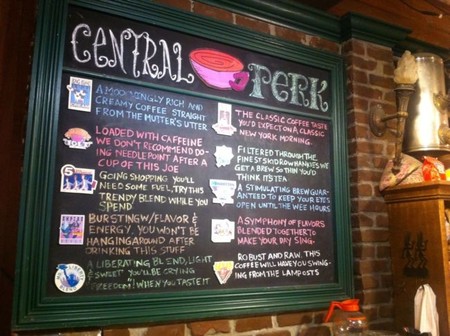 CENTRAL PERK
A MOOVINGLY RICH AND
CREAMY COFFEE STRAIGHT
FROM THE MUTTER'S UTTER
LOADED WITH CAFFEINE
WE DON'T RECOMMEND DO-
ING NEEDLEPOINT AFTER A
CUP OF THIS JOE
GOING SHOPPING? YOU'LL
NEED SOME FUEL. TRY THIS
TRENDY BLEND WHILE YOU
SPEND
BURSTING W/FLAVOR &
ENERGY. YOU WON'T BE
HANGING AROUND AFTER
DRINKING THIS STUFF
A LIBERATING BLEND, LIGHT
& SWEET YOU'LL BE CRYING
"FREEDOM!" WHEN YOU TASTE IT
THE CLASSIC COFFEE TASTE
YOU'D EXPECT ON A CLASSIC
NEW YORK MORNING.
FILTERED THROUGH THE
FINEST SKIDROW HANKIES WE
GET A BREW SO THIN YOU'D
THINK IT'S TEA
A STIMULATING BREW GUAR-
ANTEED TO KEEP YOUR EYES
OPEN UNTIL THE WEE HOURS
A SYMPHONY OF FLAVORS
BLENDED TOGETHER TO
MAKE YOUR DAY SING.
ROBUST AND RAW. THIS
COFFEE WILL HAVE YOU SWING-
ING FROM THE LAMPOSTS